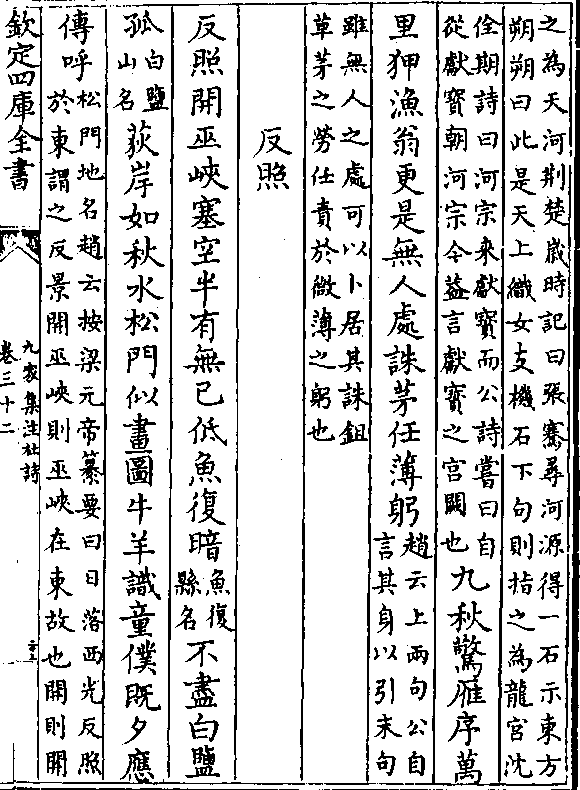 之為天河荆楚歲時記曰張騫尋河源得一石示東方
朔朔曰此是天上織女支機石下句則指之為龍宫沈
佺期詩曰河宗來獻寳而公詩嘗曰自
從獻寳朝河宗今葢言獻寳之宫闕也九秋驚雁序萬
里狎漁翁更是無人處誅茅任薄躬趙云上兩句公自
言其身以引末句
雖無人之處可以卜居其誅鉏
草茅之勞任責於微薄之躬也
反照
反照開巫峽寒空半有無已低魚復暗魚復
縣名不盡白鹽
孤白鹽
山名荻岸如秋水松門似畫圖牛羊識童僕既夕應
傳呼松門地名趙云按梁元帝纂要曰日落西光反照
於東謂之反景開巫峽則巫峽在東故也開則開
欽定四庫全書
九家集注杜詩
卷三十二